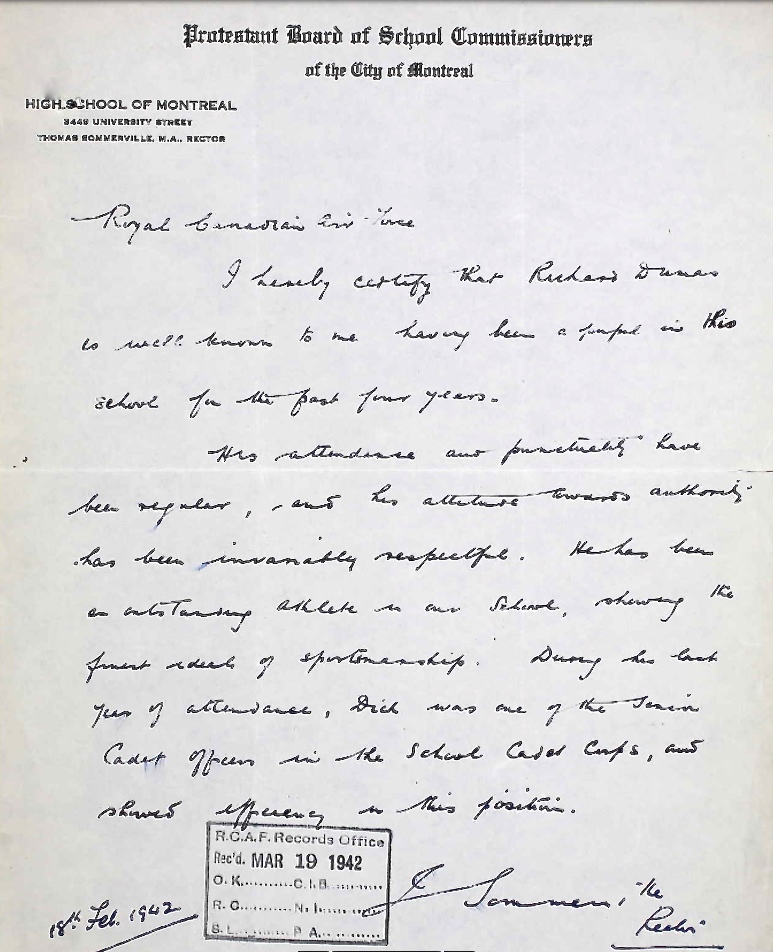 Protestant Board of School Commissioners
of the City of Montreal
HIGH SCHOOL OF MONTREAL
3449 UNIVERSITY STREET
THOMAS SOMMERVILLE, M.A., RECTOR
Royal Canadian Air Force
I hereby certify that Richard Dumas
is well known to me having been a pupil in this
school for the past four years.
His attendance and punctuality have
been regular, and his attitude towards authority
has been invariably respectful. He has been
an outstanding athlete in our School, showing the
finest ideals of sportsmanship. During his last
year of attendance, Dick was one of the Senior
Cadet Officers in the School Cadet Corps, and
showed efficiency in this position.
R.C.A.F. Records Office
Rec'd. MAR 19 1942
O.K. C.I.B.
R.C. N.I.
S.L. P.A.
Sommerville
Rector
18th Feb. 1942